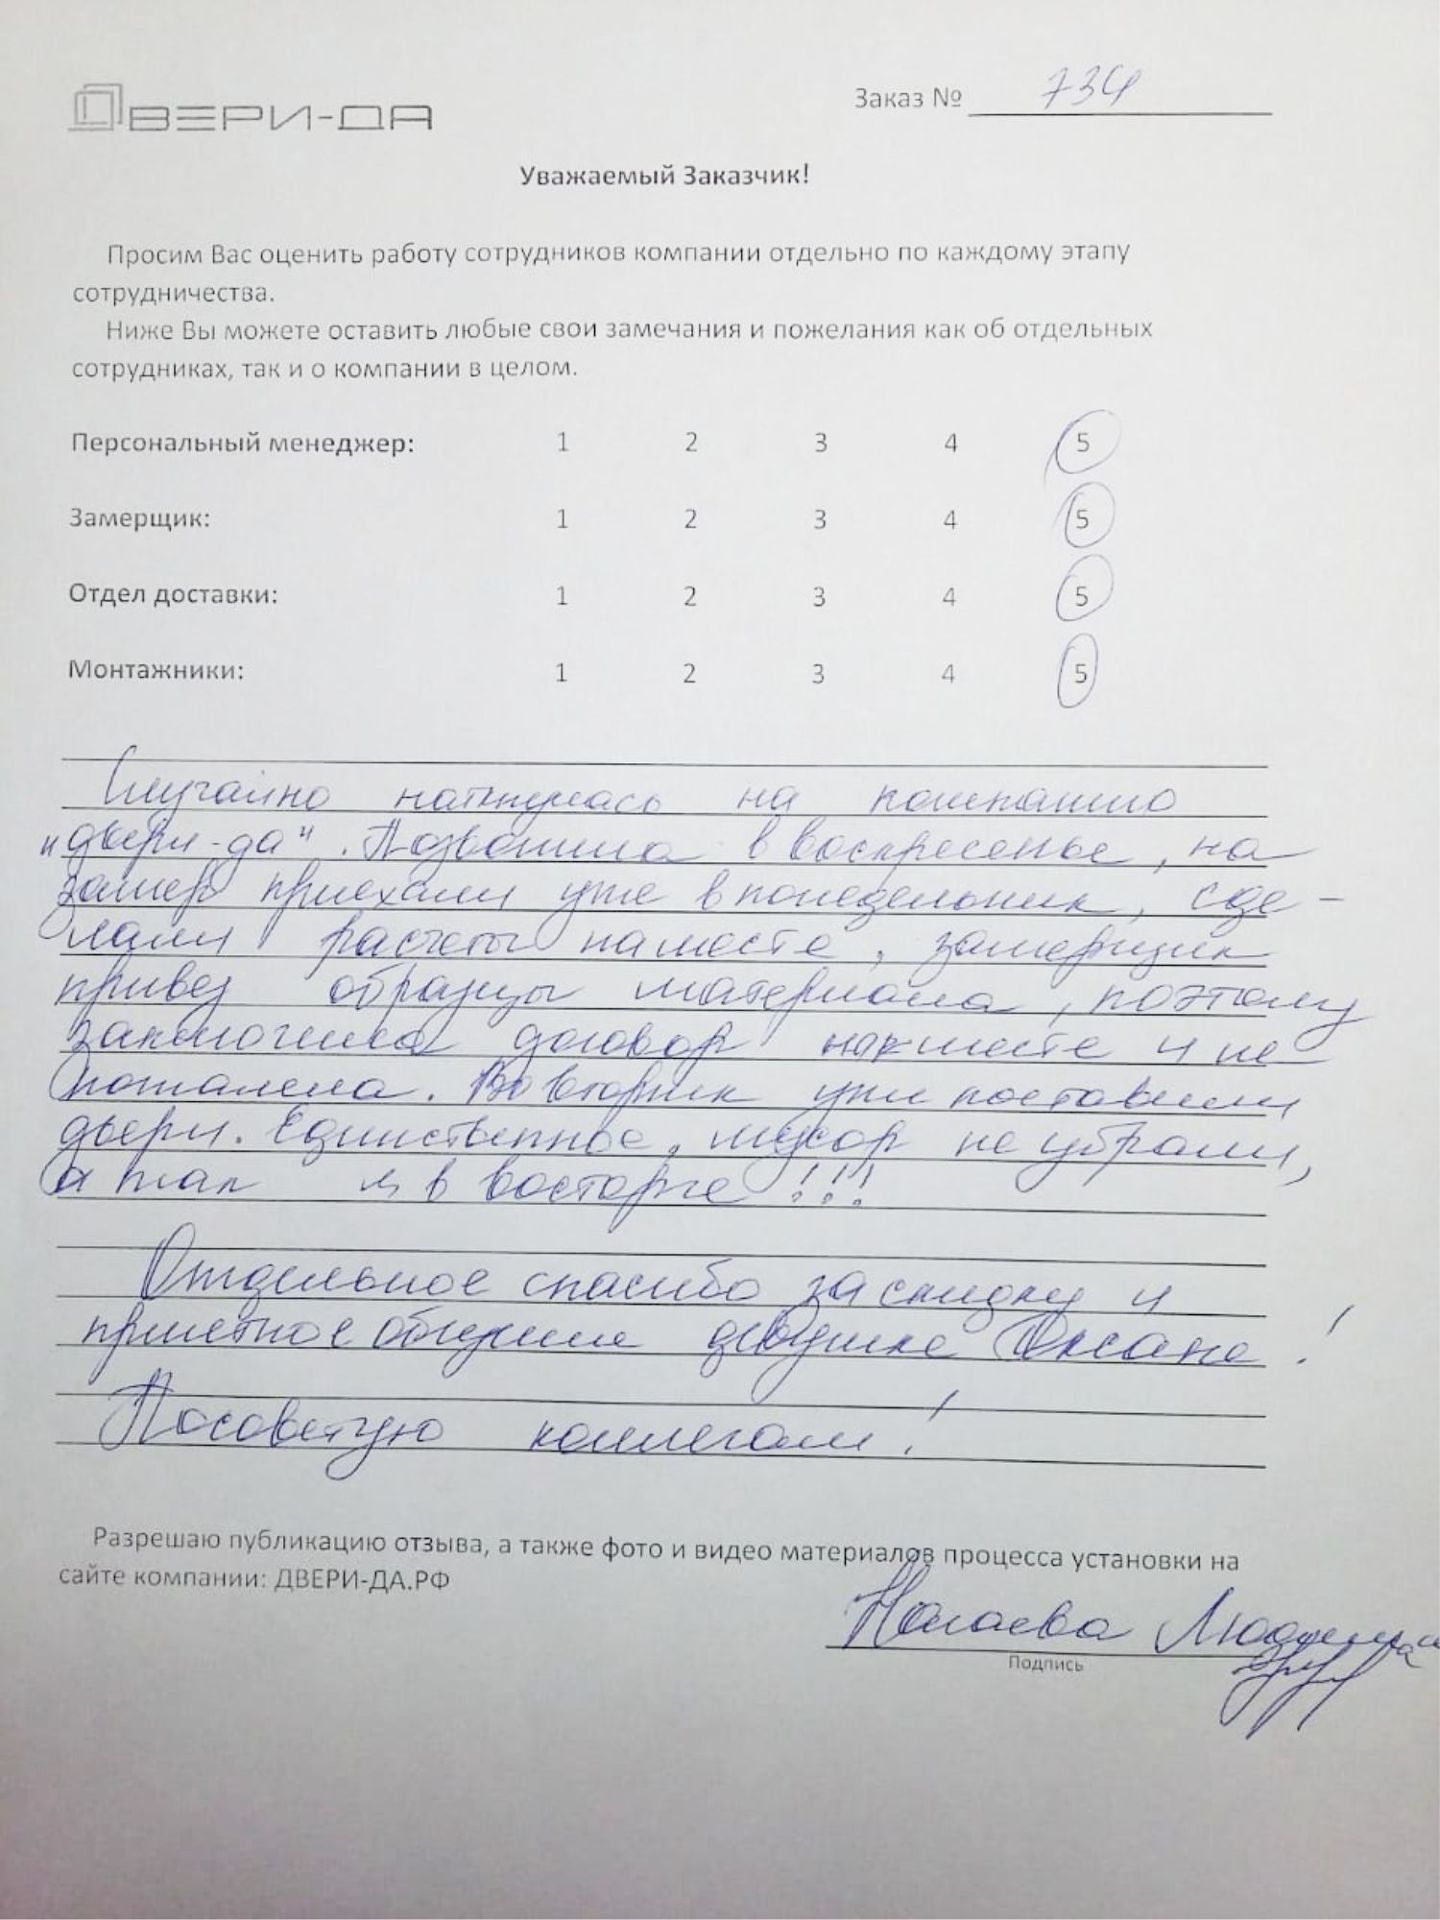 ДВЕРИ-ДА
Заказ № 734
Уважаемый Заказчик!
Просим Вас оценить работу сотрудников компании отдельно по каждому этапу
сотрудничества.
Ниже Вы можете оставить любые свои замечания и пожелания как об отдельных
сотрудниках, так и о компании в целом.
Персональный менеджер: 1 2 3 4 5
Замерщик: 1 2 3 4 5
Отдел доставки: 1 2 3 4 5
Монтажники: 1 2 3 4 5
Случайно наткнулась на компанию
"двери-да". Позвонила в воскресенье, на
замер приехали уже в понедельник, сде-
лали расчеты на месте, замерщик
привез образцы материала, поэтому
заключила договор на месте и не
пожалела. Во вторник уже поставили
двери. Единственное, мусор не убрали,
а так я в восторге!!!
Отдельное спасибо за скидку и
приятное общение девушке Оксане!
Посоветую коллегам!
Разрешаю публикацию отзыва, а также фото и видео материалов процесса установки на
сайте компании: ДВЕРИ-ДА.РФ
Людмила
Подпись